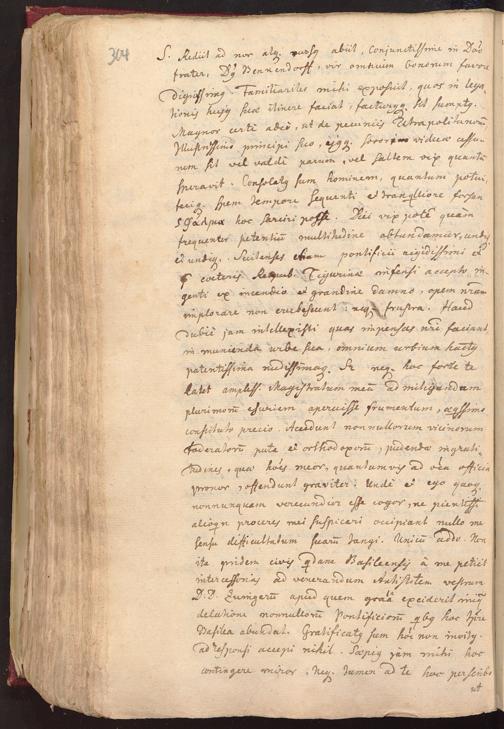 304
S. Rediit ad nos atq. rursq abiit, Conjunctissime in Dño
frater, Dq Bennendorff, vir omnium bonorum favore
Dignissimq. Familiariter mihi exposuit, quos in lega
tionis hujq suae itinere faciat, facturusq. sit sumptq.
Magnos certè adeò, ut de pecuniis
Illustrissimo principi suo, ejqq. sorori viduae
num sit vel valdè parum, vel saltem vix quantum
speravit. Consolatq sum hominem, quantum potui,
feciq. spem tempore sequenti et tranquilliore forsan
hoc sarciri posse. Dici vix potest quàm
frequenter petentiū multitudine obtundamur, undiq
et undiq. Suitenses etiam pontificii rigidissimi et
prae coeteris Reipub. Tigurinae infensi accepto in
genti ex incendio et grandine damno, opem nr̃am
implorare non erubescunt: neq. frustra. Haud
dubiè jam intellexisti quas impensas nr̃i faciant
in munienda urbe sua, omnium urbium hactq
patentissima nudissimaq. Sed neq. hoc forte te
latet ampliss. Magistratum meū ad mitigandam
plurimorū esuriem aperuisse frumentum, aequissimo
constituto precio. Accedunt nonnullorum vicinorum
foederatorū putà et orthodoxorū, pudendae ingrati
tudines, quae hoēs meos, quantumvis ad oēa officia
pronos, offendunt graviter: Unde et ego quoq
nonnunquam verecundior esse cogor, ne pientiss.
alioqn proceres mei suspicari occipiant nullo me
sensu difficultatum suarū tangi. Unicū addo. Non
ita pridem civis qdam Basileensis à me petiit
intercessiones ad venerandum Antistitem vestrum
D. D. Zuingerū apud quem gr̃aa exciderit
delatione nonnullorum Pontificiorū qbq hoc tp̃re
Basilea abundat. Gratificatq sum hoī non invitq.
ad responsi accepi nihil. Saepiq jam mihi hoc
contingere miror. Neq. tamen ad te hoc perscribo
ut